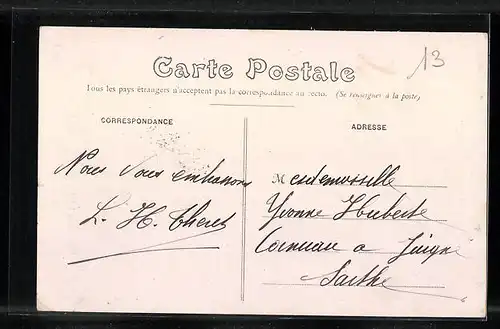 13
Carte Postale
Tous les pays étrangers n'acceptent pas la correspondance au recto. (Se renseigner à la poste)
CORRESPONDANCE
ADRESSE
Nous vous embrassons
L. H.
Mademoiselle
Yvonne Huberte
a
Sarthe